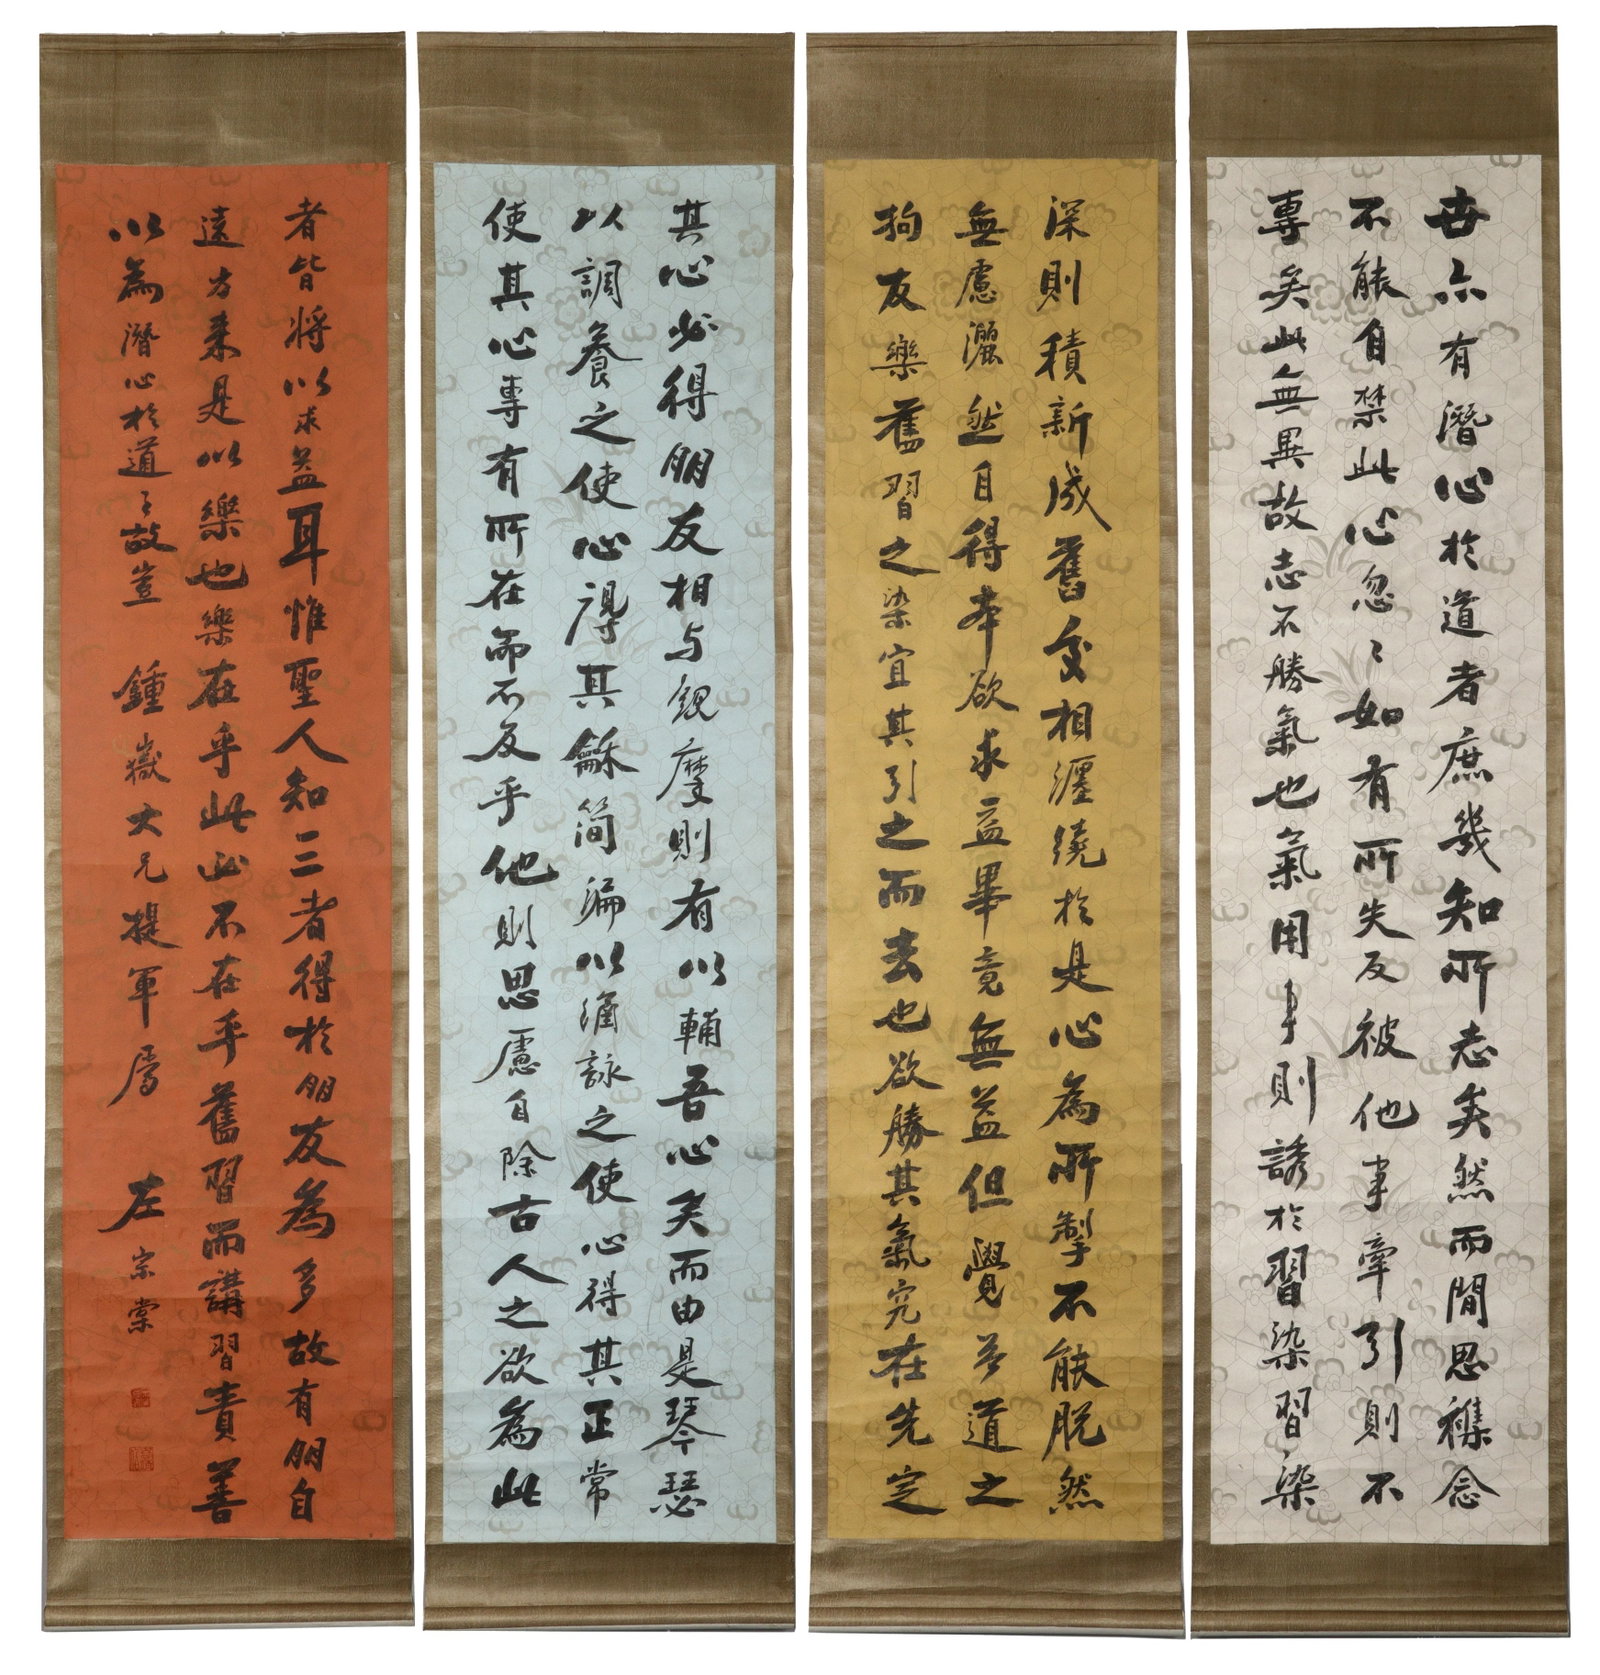 世亦有潛心於道者庶幾知所志矣然而閒思襍念
不能自禁此心忽〻如有所失反被他事牽引則不
專矣此無異故志不勝氣也氣用事則誘於習染習〻染
深則積新成舊交相纏繞於是心為所掣不能脫然
無慮灑然自得本欲求益畢竟無益但覺為道之
拘反樂舊習之染宜其引之而去也欲勝其氣究在先定
其心必得朋友相与觀摩則有以輔吾心矣而由是琴瑟
以調養之使心得其龢簡編以諷詠之使心得其正常
使其心專有所在而不及乎他則思慮自除古人之欲為此
者皆將以求益耳惟聖人知三者得於朋友為多故有朋自
遠方来是以樂也樂在乎此必不在乎舊習而講習責善
以為潛心於道〻故豈 鍾嶽大兄提軍屬 左宗棠